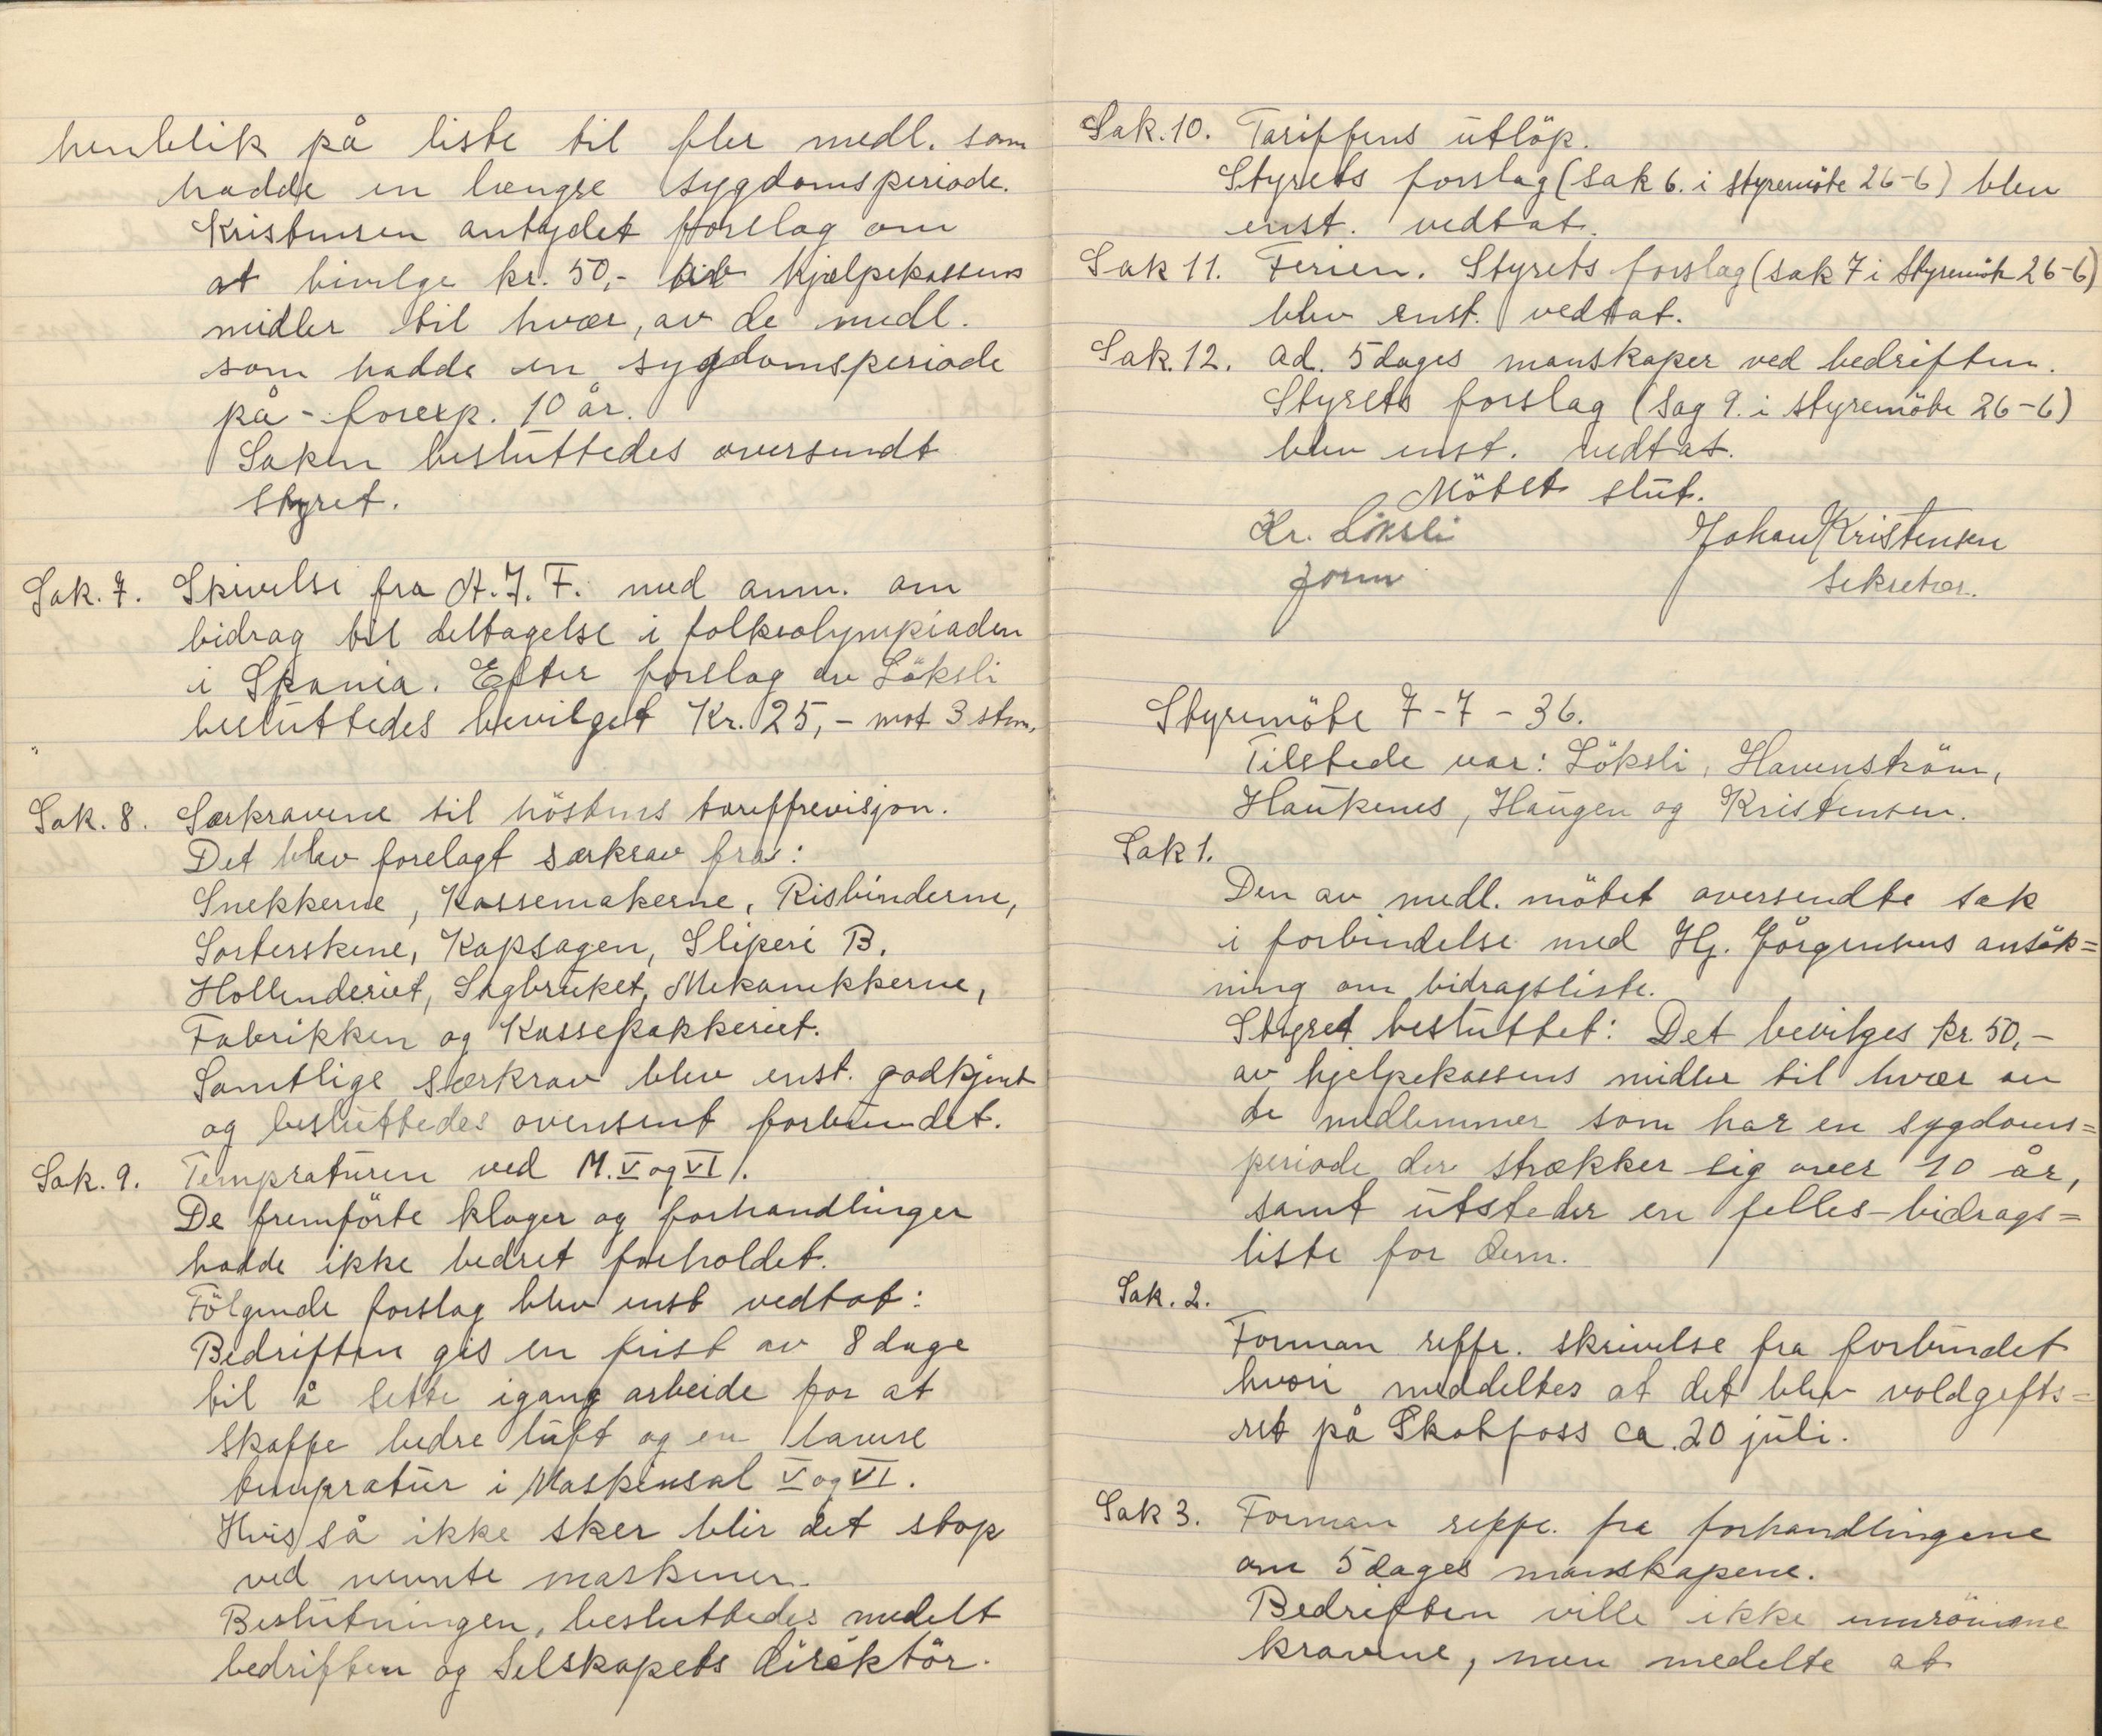 henblik på liste til fler medl. som
hadde en længre sygdomsperiode.
Kristensen antydet forslag om
at bivilge kr. 50,- hjælpekassens
midler til hvær, av de medl.
som hadde en sygdomsperiode
på - forexp. 10 år.
Saken besluttedes oversendt
styret.
Sak. 7. Skivelse fra A.I.F. med anm. om
bidrag til deltagelse i folkeolympiaden
i Spania. Efter forslag av Löksli
besluttedes bevilget Kr. 25,- mot 3 stm.
Sak. 8. Særkravene til höstens tariffrevisjon.
Det blev forelagt særkrav fra:
Snekkerne, Kassemakerne, Risbinderne,
Sorterskene, Kapsagen, Sliperi B.
Hollenderiet, Sagbruket, Mekanikkerne,
Fabrikken og Kassepakkeriet.
Samtlige særkrav blev enst. godkjent
og besluttedes oversent forbundet.
Sak. 9. Tempraturen ved M. V og VI.
De fremförte klager og forhandlinger
hadde ikke bedret forholdet.
Fölgende forslag blev enst vedtat:
Bedriften gis en frist av 8 dage
til å sette igang arbeide for at
skaffe bedre luft og en lavere
tempratur i Maskinsal V og VI.
Hvis så ikke sker blir det stop
ved nevnte maskiner.
Beslutningen, besluttedes medelt
bedriften og Selskapets direktör.
Sak. 10. Tariffens utlöp.
Styrets forslag (sak 6. i styremöte 26-6) blev
enst. vedtat.
Sak 11. Ferien. Styrets forslag (sak 7 i Styremöte 26-6)
blev enst. vedtat.
Sak. 12. ad. 5 dages manskaper ved bedriften.
Styrets forslag (Sag 9. i styremöte 26-6)
blev enst. vedtat.
Mötet slut.
Kr. Löksli Johan Kristensen
form sekretær.
Styremöte 7-7-36.
Tilstede var: Löksli, Havenström,
Haukenes, Haugen og Kristensen.
Sak 1.
Den av medl. mötet oversendte sak
i forbindelse med Hj. Jörgensens ansök=
ning om bidragsliste.
Styret besluttet: Det bevilges kr. 50,-
av hjelpekassens midler til hvær av
de medlemmer som har en sygdoms=
periode der strækker sig over 10 år,
samt utsteder en felles-bidrags=
liste for dem.
Sak. 2.
Forman reffr. skrivelse fra forbundet
hvori meddeltes at det blev voldgifts=
ret på Skotfoss ca. 20 juli.
Sak 3. Forman reffr. fra forhandlingene
om 5 dages manskapene.
Bedriften ville ikke
kravene, men medelte at